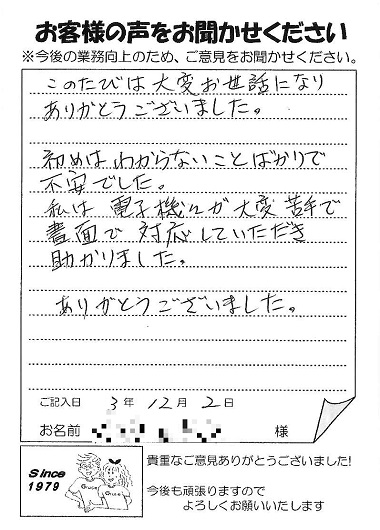 お客様の声をお聞かせください
※今後の業務向上のため、ご意見をお聞かせください。
このたびは大変お世話になり
ありがとうございました。
初めはわからないことばかりで
不安でした。
私は電子機器が大変苦手で
書面で対応していただき
助かりました。
ありがとうございました。
ご記入日 3年 12月 2日
お名前 様
Since
1979
貴重なご意見ありがとうございました!
今後も頑張りますので
よろしくお願いいたします